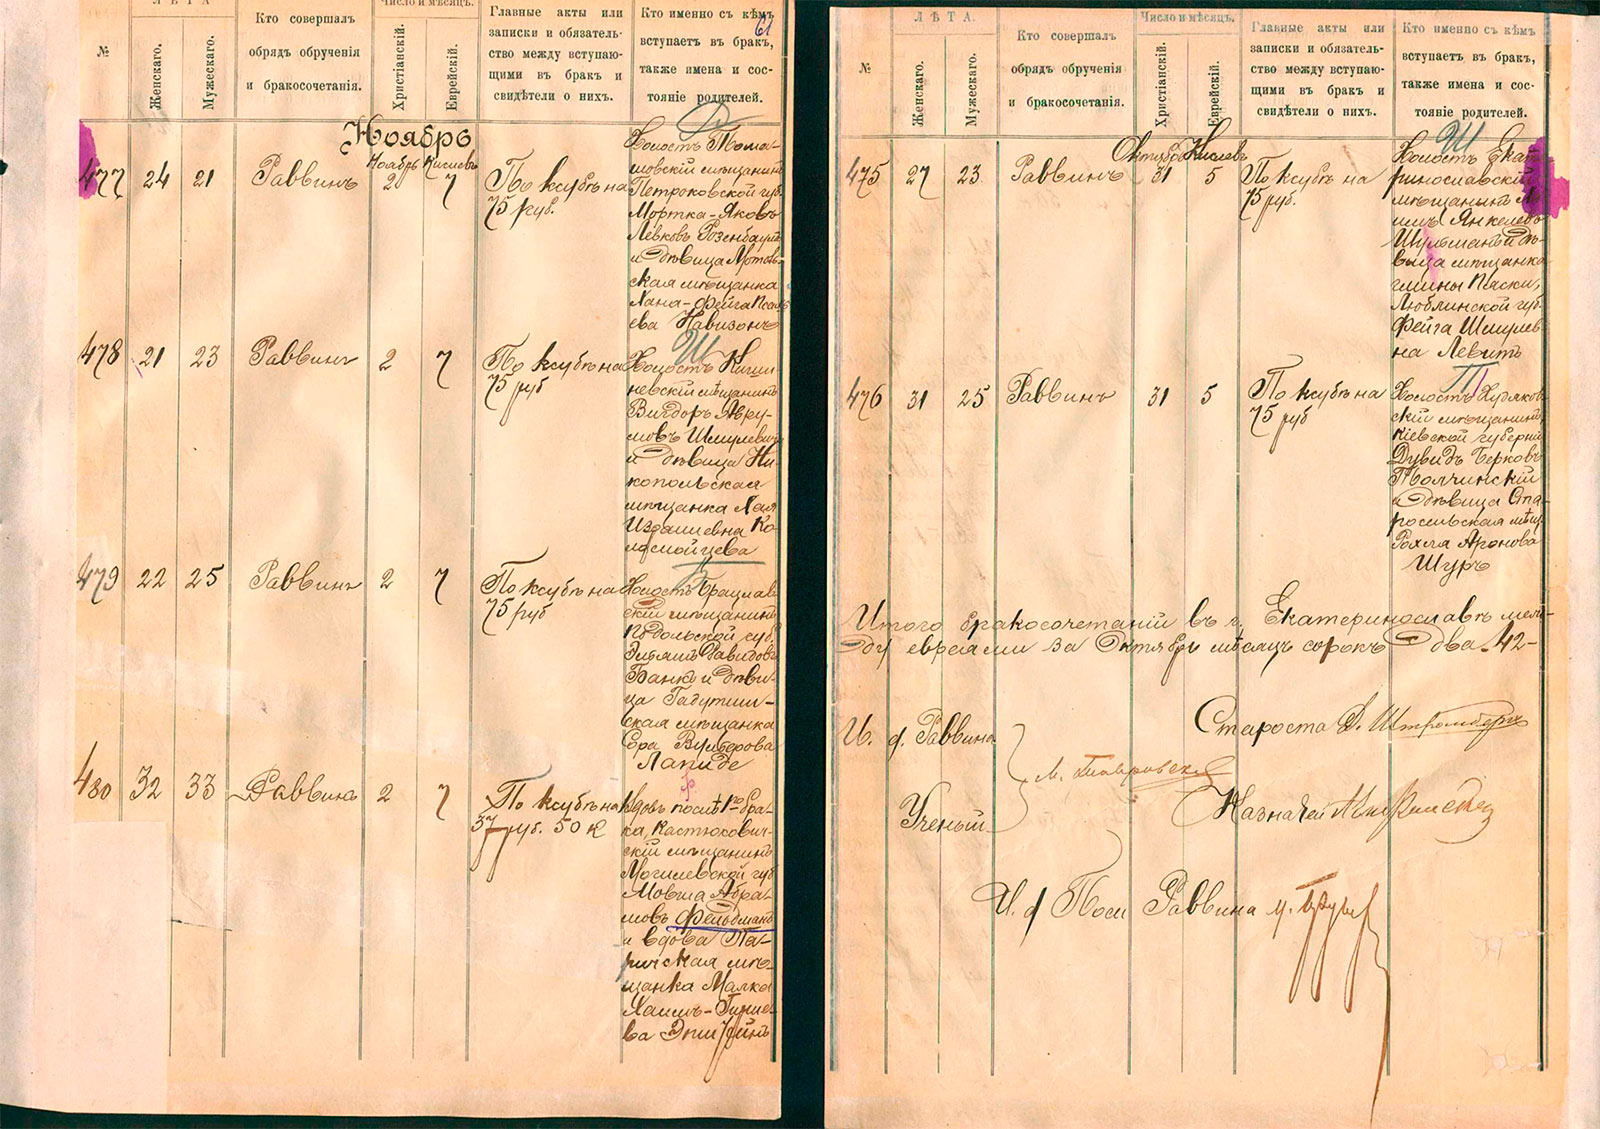 61
ЛѢТА
Число и мѣсяцъ.
№
Женскаго.
Мужескаго.
Кто совершалъ
обрядъ обрученія
и бракосочетанія.
Христіанскій.
Еврейскій.
Главные акты или
записки и обязатель-
ство между вступаю-
щими въ бракъ и
свидѣтели о нихъ.
Кто именно съ кѣмъ
вступаетъ въ бракъ,
также имена и сос-
тояніе родителей.
Ноябрь
Ноябрь Кислевъ
477 24 21 Раввинъ 2 7
По ксубѣ на
75 руб.
Холостъ Тома-
шовскій мѣщанинъ
Петроковской губ.
Мортка-Яковъ
Левковъ Розенбаумъ
и дѣвица
ская мѣщанка
Хана-Фейга
ева Навизонъ
Ш
478 21 23 Раввинъ 2 7
По ксубѣ на
75 руб
Холостъ Киши-
невскій мѣщанинъ
Вигдоръ Авру-
мовъ Шмулевичъ
и дѣвица Ни-
копольская
мѣщанка Хая
Израилевна Ко-
ломойцева
479 22 25 Раввинъ 2 7
По ксубѣ на
75 руб
Холостъ Брацлав-
скій мѣщанинъ
Подольской губ.
Давидовъ
Банкъ и дѣви-
ца Гадутиш-
ская мѣщанка
Сора Вульфова
Лапиде
480 32 33 Раввинъ 2 7
По ксубѣ на
37 руб. 50 к
Вдовъ послѣ 1го бра-
ка, Костюкович-
скій мѣщанинъ
Могилевской губ
Мовша Абра-
мовъ Фельдманъ
и вдова Па-
ричская мѣ-
щанка Малка
Хаимъ-
ва
ЛѢТА.
Число и мѣсяцъ.
№
Женскаго.
Мужескаго.
Кто совершалъ
обрядъ обрученія
и бракосочетанія.
Христіанскій.
Еврейскій.
Главные акты или
записки и обязатель-
ство между вступаю-
щими въ бракъ и
свидѣтели о нихъ.
Кто именно съ кѣмъ
вступаетъ въ бракъ,
также имена и сос-
тояніе родителей.
Октябрь Кислевъ
Ш
475 27 23 Раввинъ 31 5
По ксубѣ на
75 руб.
Холостъ Екате-
ринославскій
мѣщанинъ
Янкелевъ
Шульманъ и дѣ-
вица мѣщанка
гмины Пяски,
Люблинской губ.
Фейга Шмулев-
на Левитъ
Т
476 31 25 Раввинъ 31 5
По ксубѣ на
75 руб
Холостъ Худяков-
скій мѣщанинъ,
Кіевской губерніи
Дувидъ Берковъ
Толчинскій
и дѣвица Ста-
росельская мѣщ.
Рохля Аронова
Шуръ
Итого бракосочетаній въ г. Екатеринославѣ меж-
ду евреями за Октябрь мѣсяцъ сорокъ два. 42-
Староста Д. Штромбергъ
И. ф. Раввина
Ученый
Казначей
И. ф Пом Раввина